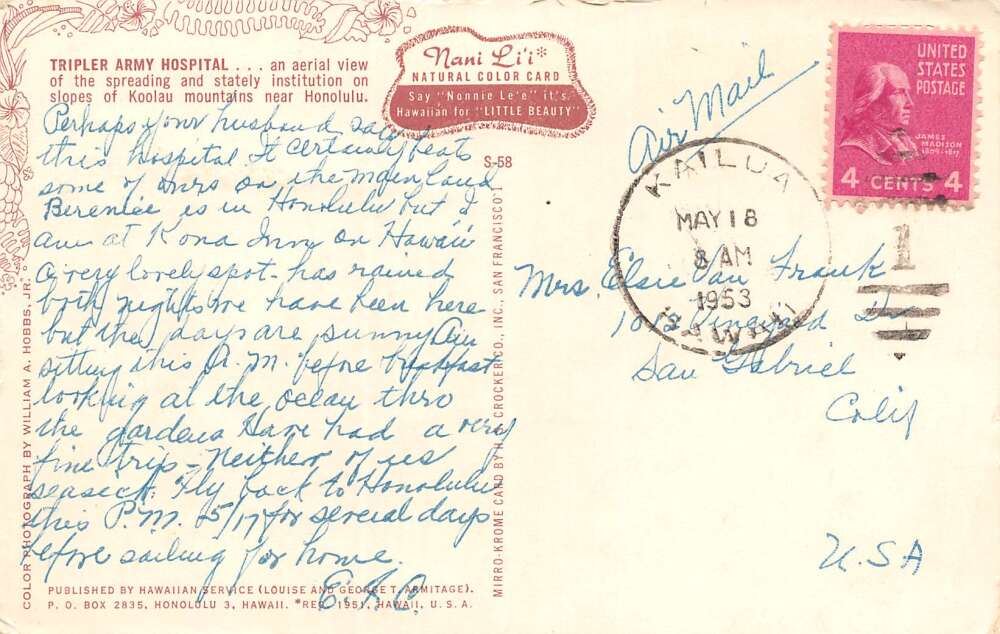 TRIPLER ARMY HOSPITAL . . . an aerial view
of the spreading and stately institution on
slopes of Koolau mountains near Honolulu.
Nani Li'i*
NATURAL COLOR CARD
Say "Nonnie Le'e" it's
Hawaiian for "LITTLE BEAUTY"
S-58
Perhaps your husband saw
this hospital It certainly beats
some of ours on the mainland
Bereniece is in Honolulu but I
am at Kona Inn on Hawaii
a very lovely spot - has rained
both nights we have been here
but the days are sunny Am
sitting this A.M. before breakfast
looking at the ocean thro
the gardens Have had a very
fine trip - Neither of us
seasick. Fly back to Honolulu
this P.M. 5/17 for several days
before sailing for home.
E. F. C.
PUBLISHED BY HAWAIIAN SERVICE (LOUISE AND GEORGE T. ARMITAGE).
P. O. BOX 2835, HONOLULU 3, HAWAII. *REG 1951, HAWAII, U. S. A.
COLOR PHOTOGRAPH BY WILLIAM A. HOBBS, JR.
MIRRO-KROME CARD BY H. S. CROCKER CO., INC., SAN FRANCISCO 1
Air Mail
UNITED
STATES
POSTAGE
JAMES
MADISON
1809-1817
4 CENTS 4
KAILUA
MAY 18
8 AM
1953
HAWAII
1
Mrs. Elsie Van Frank
Vineyard Dr
San Gabriel
Calif
USA